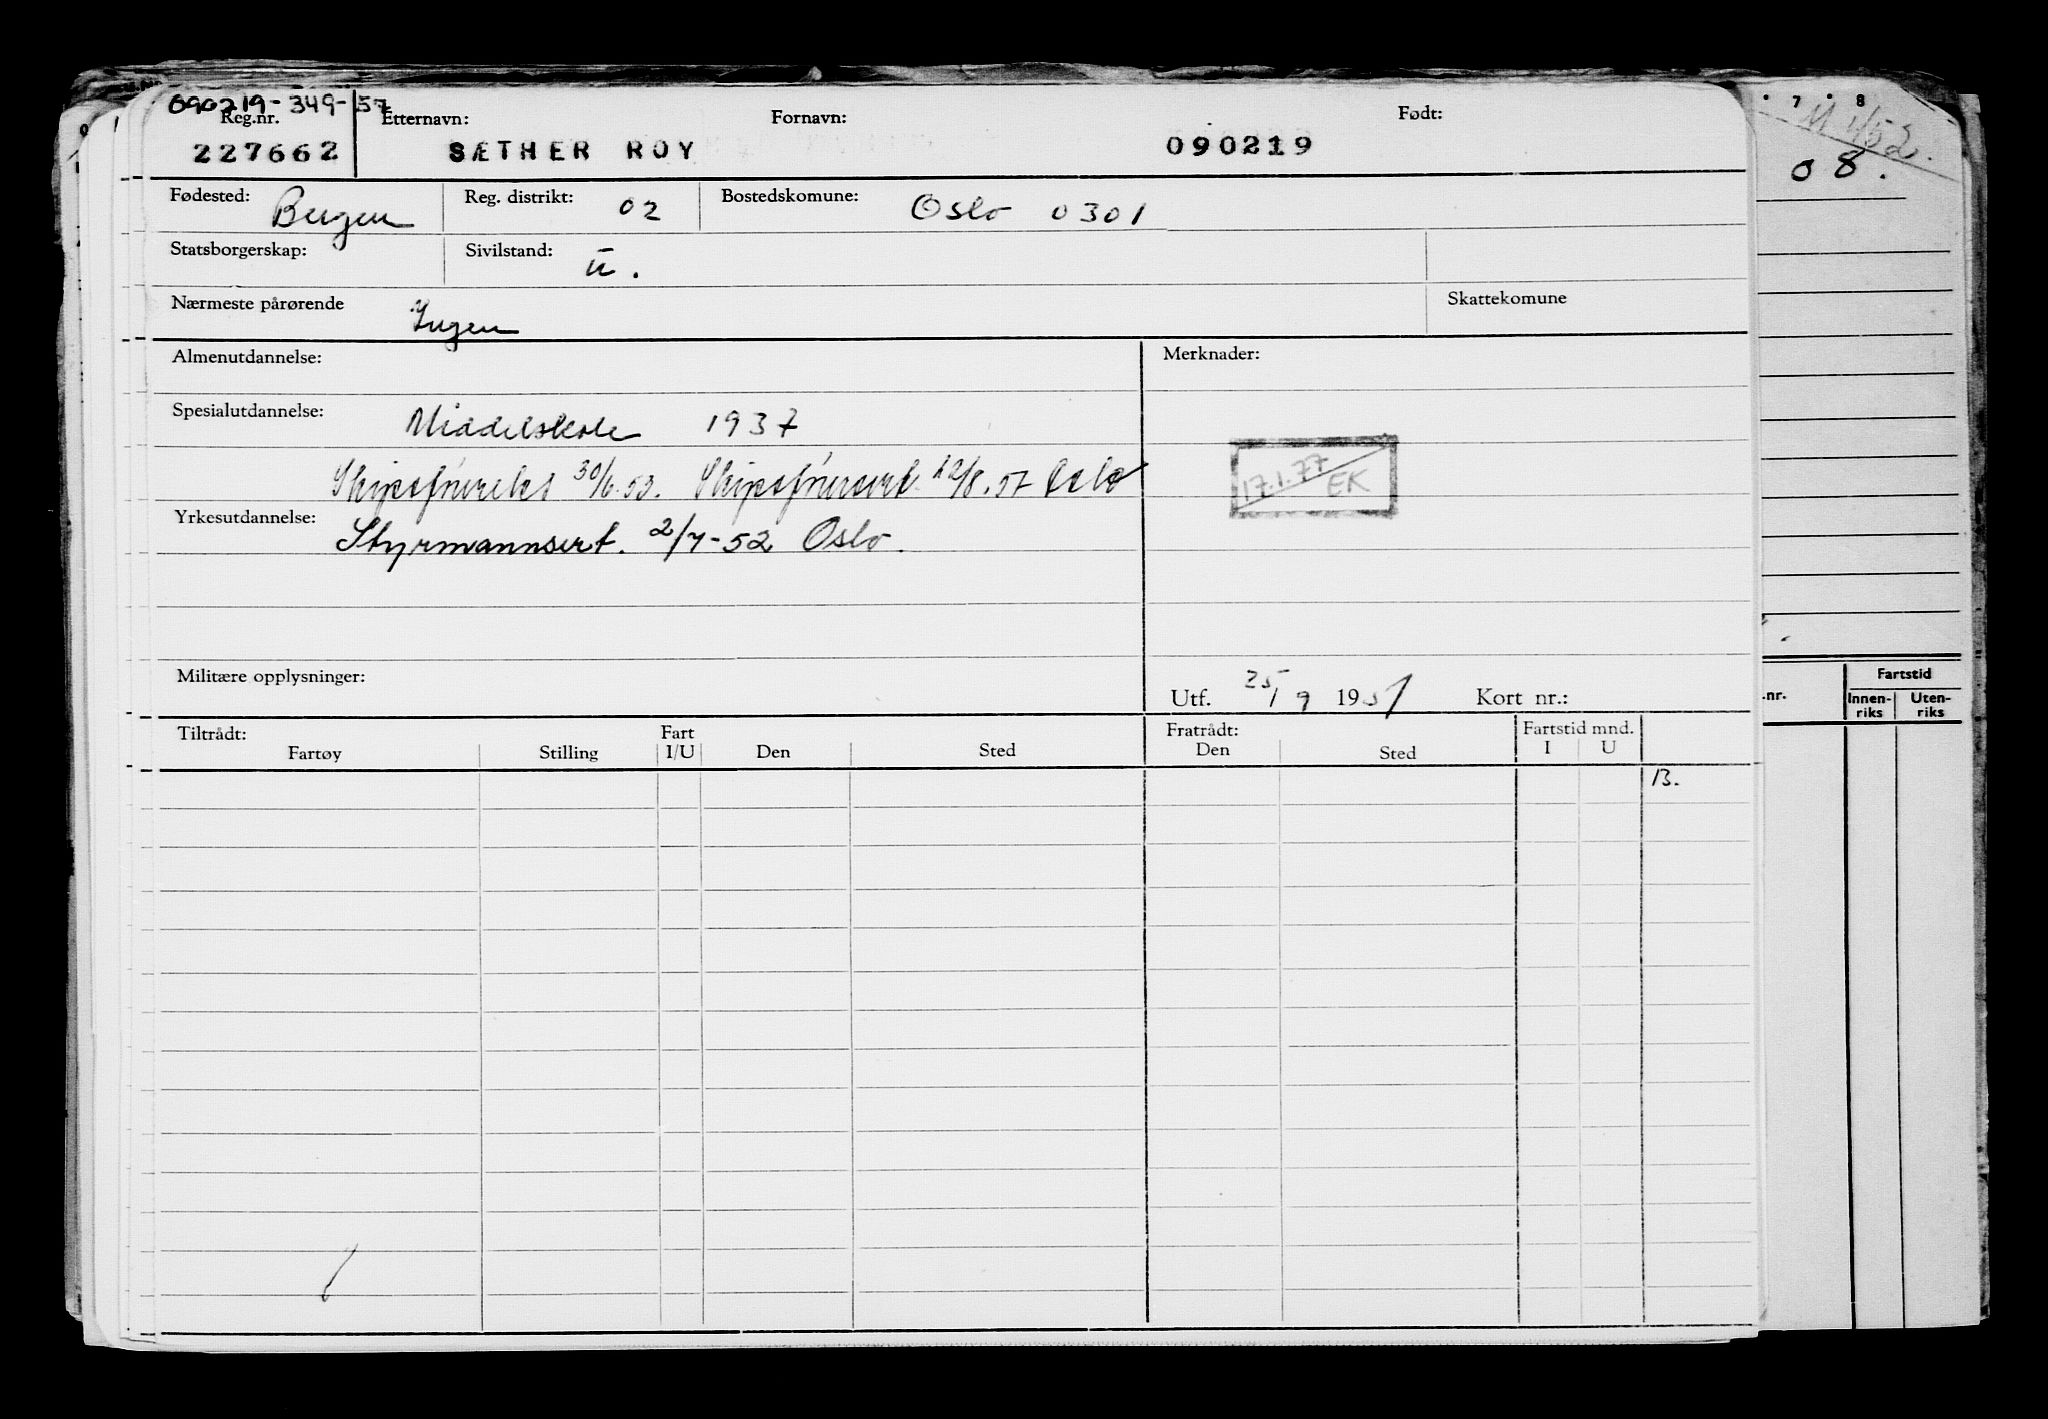 090219-349-57
Reg.nr. Etternavn: Fornavn: Født:
227662 SÆTHER ROY 090219
Fødested: Bergen Reg. distrikt: 02 Bostedskomune: Oslo 0301
Statsborgerskap: Sivilstand: u.
Nærmeste pårørende Ingen Skattekomune
Almenutdannelse: Merknader:
Spesialutdannelse: Middelskole 1937
Skipsførereks 30/6.53. Skipsførersert. 12/8.57 Oslo
17.1.77 EK
Yrkesutdannelse: Styrmannsert. 2/7-52 Oslo.
Militære opplysninger:
Utf. 25/9 1957 Kort nr.:
Tiltrådt: Fart Fratrådt: Fartstid mnd.
Fartøy Stilling I/U Den Sted Den Sted I U
13.
7 8
08.
.nr. Fartstid
Innen-riks Uten-riks